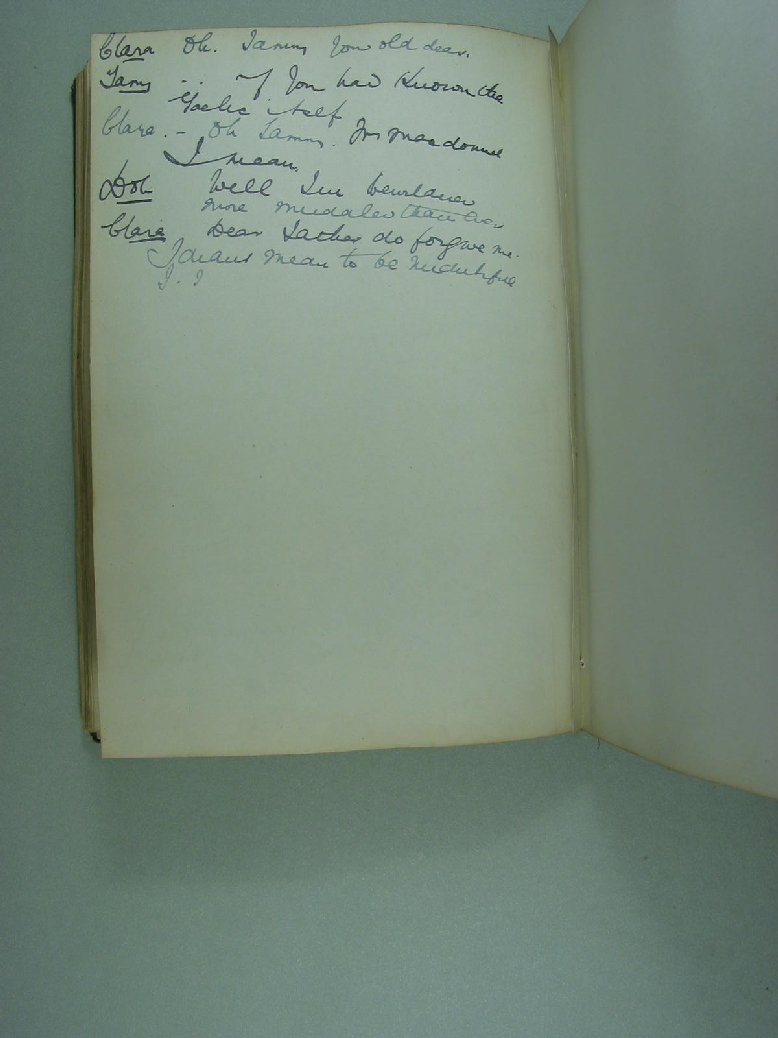 Clara Oh. Tammy you old dear.
Tamy .. If you had Known the
Gaelic itself
Clara. - Oh Tammy. Mrs Macdonnell
I mean.
Dol Well I'm
more than
Clara Dear Father do forgive me.
I didn't mean to be undutiful
I. I